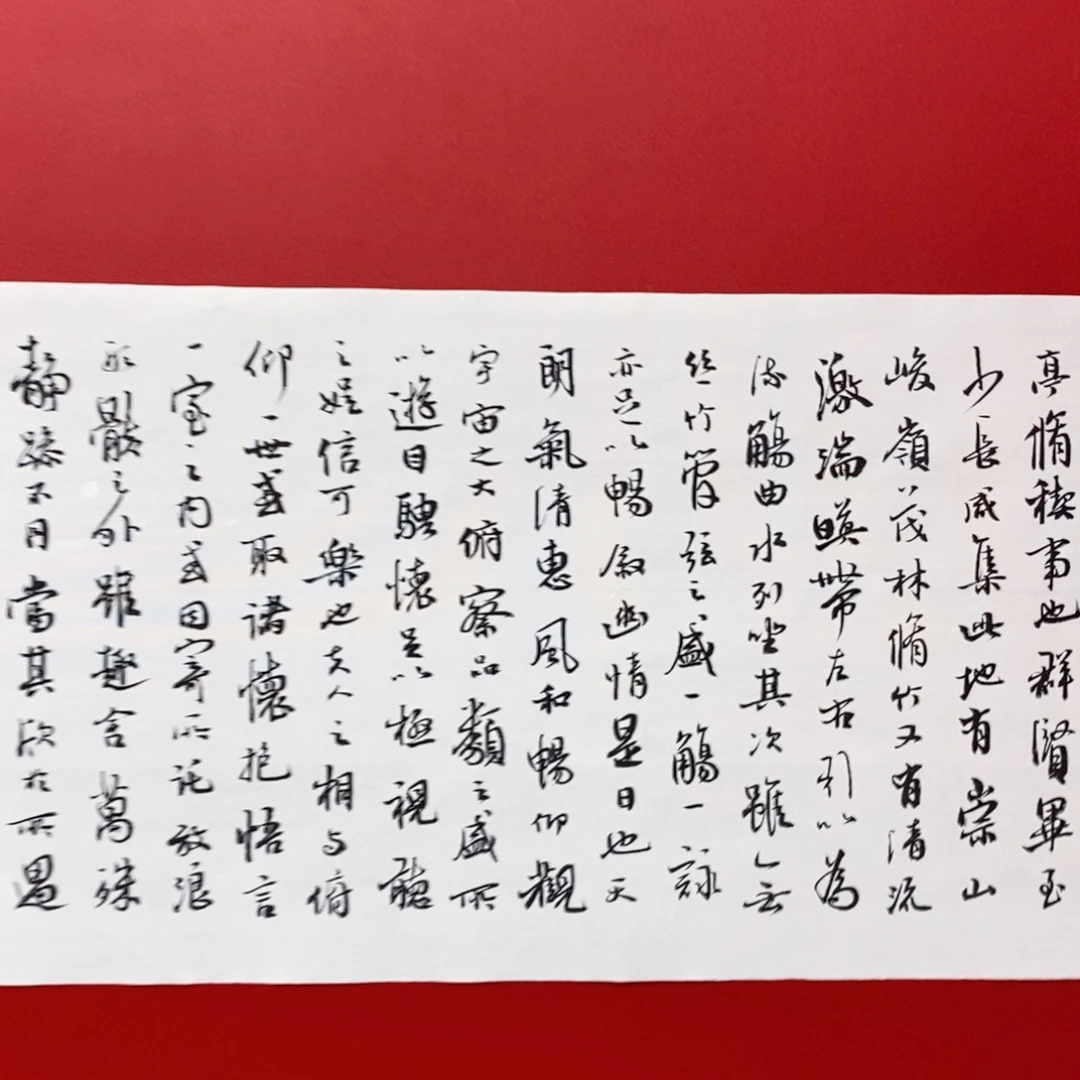 亭脩稧事也群賢畢至
少長咸集此地有崇山
峻嶺茂林脩竹又有清流
激湍暎帶左右引以為
流觴曲水列坐其次雖無
絲竹管弦之盛一觴一詠
亦足以暢敘幽情是日也天
朗氣清惠風和暢仰觀
宇宙之大俯察品類之盛所
以遊目騁懷足以極視聽
之娛信可樂也夫人之相與俯
仰一世或取諸懷抱悟言
一室之內或因寄所託放浪
形骸之外雖趣舍萬殊
靜躁不同當其欣於所遇